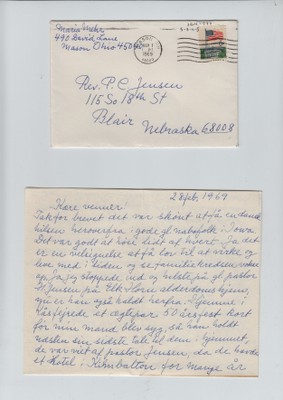 Maria Mehr
490 David Lane
Mason Ohio 45040
MAR 1
1969
Rev. P.C. Jensen
115 So 18th St
Blair
Nebraska 68008
28 feb. 1969
Kære venner!
Tak for brevet det var skønt at få en dansk
hilsen herovre fra gode gl. nabofolk i Iowa.
Det var godt at høre lidt af hvert. Ja det
er en velsignelse at få lov til at virke og
leve med i tiden og se familiekredsen vokse
op. Ja jeg stoppede ind og hilste på gl. pastor
H. Jensen på Elk Horn alderdomshjem,
nu er han også kaldt herfra. Hjemme i
et ægtepar 50 årsfest kort
før min mand blev syg, så han holdt
næsten sin sidste tale til dem i hjemmet,
de var viet af pastor Jensen, da de havde
et Hotel i Kimballton for mange år